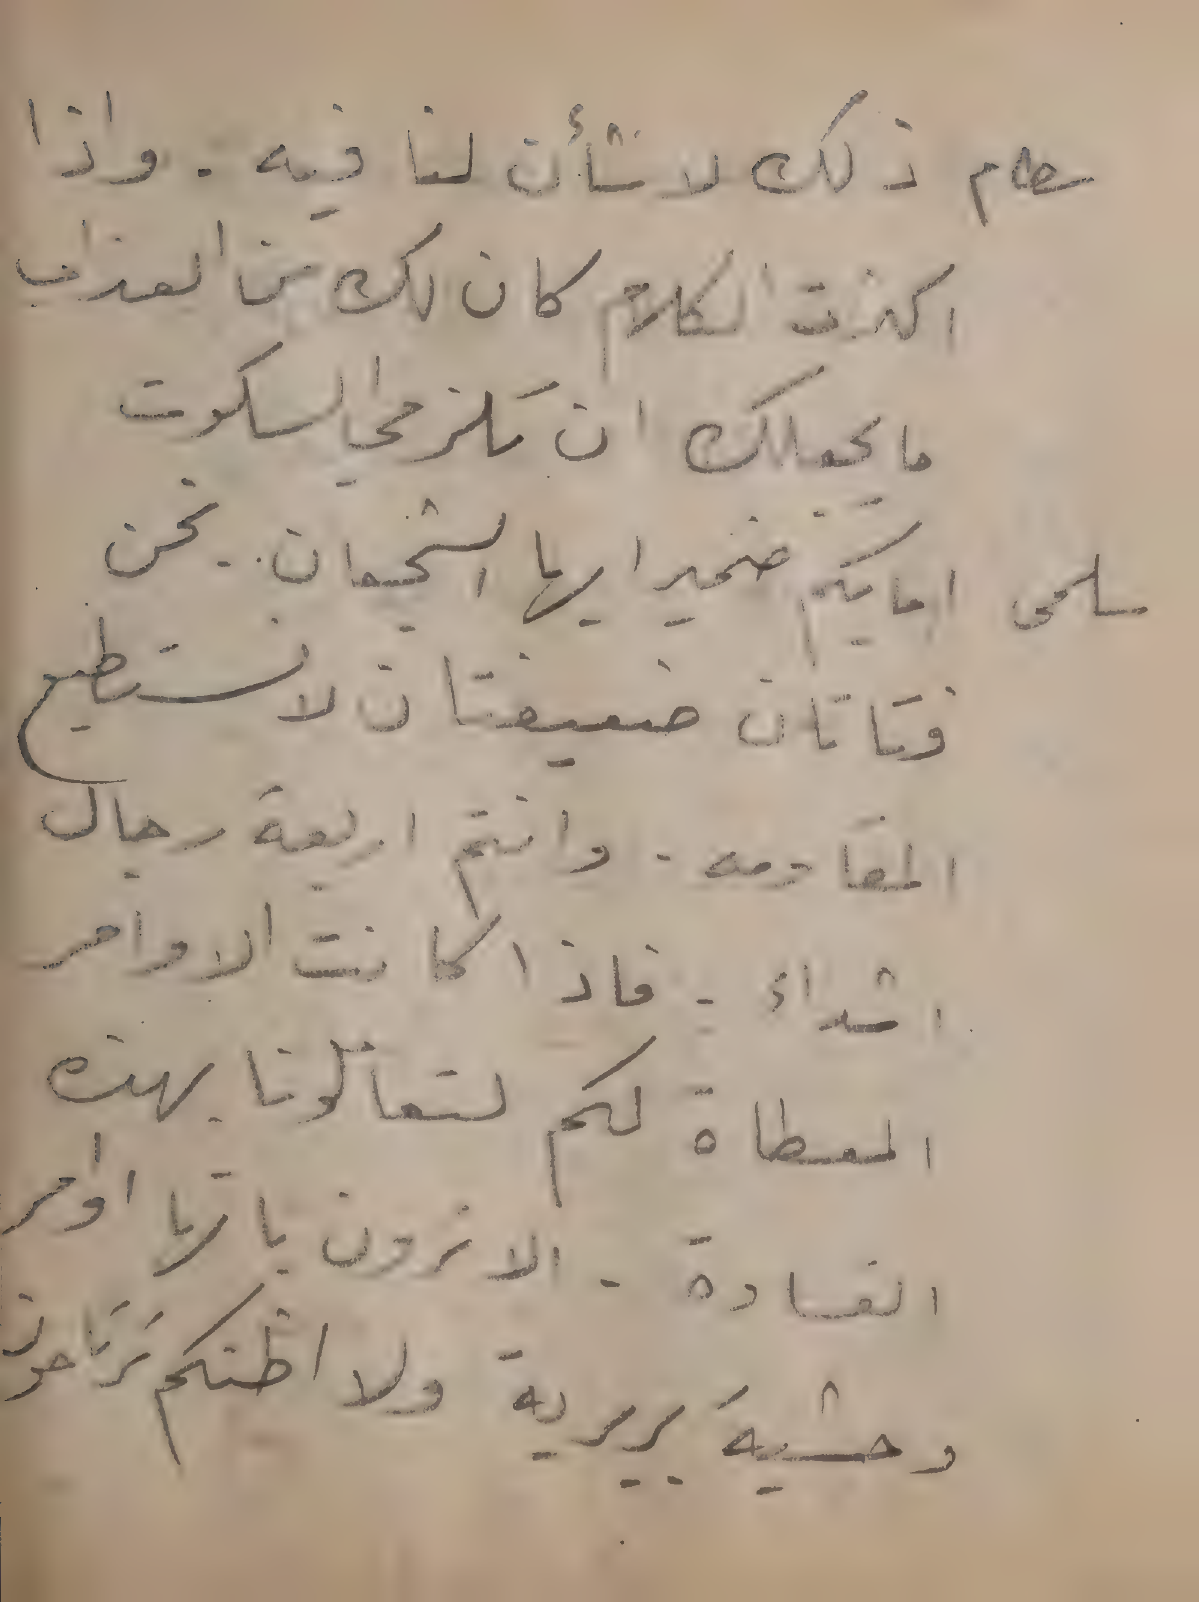 سهام ذلك لا شأن لنا فيه . واذا
اكثرت الكلام كان لك من العذاب
ما يجعلك ان تلزمي السكوت
سلمى امابكم ضمير ايها الشجعان . نحن
فتاتان ضعيفتان لا نستطيع
المقاومه . وانتم اربعة رجال
اشداء . فاذا كانت الاوامر
المعطاة لكم لتعاملونا بهذه
القساوة . الا ترون بانها اوامر
وحشية بربرية ولا اظنكم ترتاحون